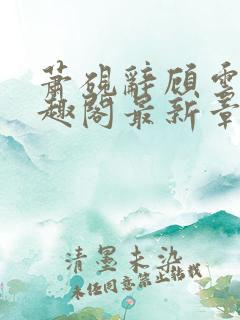 萧砚辞顾云
趣阁最新章
清墨未染
未经同意禁止转载